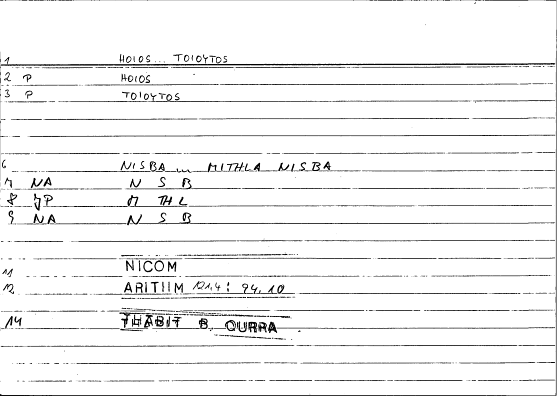 1 HOIOS... TOIOYTOS
2 P HOIOS
3 P TOIOYTOS
6 NISBA ... MITHLA NISBA
7 NA N S B
8 P M TH L
9 NA N S B
11 NICOM
12 ARITHM 121,4: 94,10
14 THABIT B. QURRA